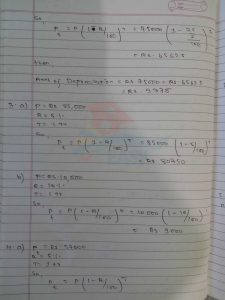 So,
P_t = P(1 - R/100)^T = 75000 (1 -
= Rs. 65625
Amt of Depreciation = Rs 75000 - Rs. 65625
= Rs. 9375
3. a)
R = 5%
T = 1 yr
So,
P_t = P(1 - R/100)^T = 85000 (1 - 5/100)^1
= Rs 80750
b) P = Rs 10,000
R = 10%
T = 1 yr
So,
P_t = P(1 - R/100)^T = 10000 (1 - 10/100)^1
= Rs 9000
4. a) P = Rs 57000
R = 5%
T =
So,
P_t = P(1 - R/100)^T